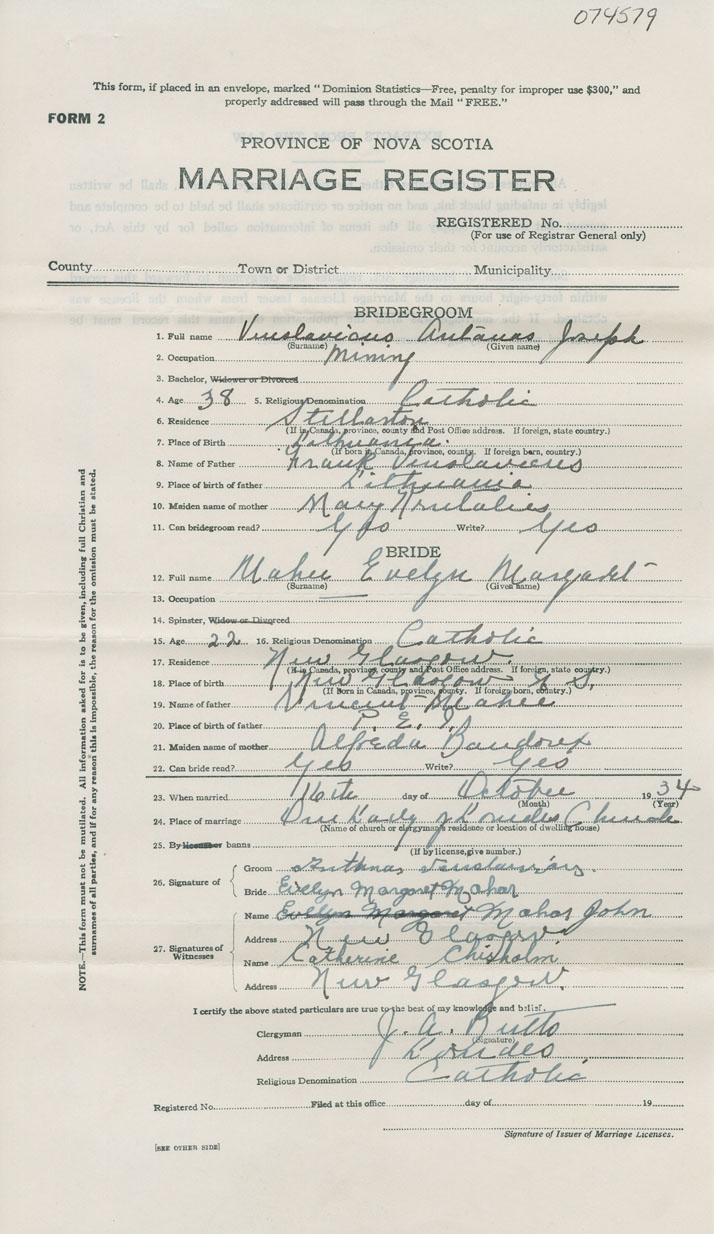 074579
This form, if placed in an envelope, marked "Dominion Statistics—Free, penalty for improper use $300," and
properly addressed will pass through the Mail "FREE."
FORM 2
PROVINCE OF NOVA SCOTIA
MARRIAGE REGISTER
REGISTERED No.
(For use of Registrar General only)
County Town or District Municipality
BRIDEGROOM
1. Full name Vinslavicous Antanas Joseph
(Surname) (Given name)
2. Occupation Mining
3. Bachelor, Widower or Divorced
4. Age 38 5. Religious Denomination Catholic
6. Residence Stellarton
(If in Canada, province, county and Post Office address. If foreign, state country.)
7. Place of Birth Lithuania.
(If born in Canada, province, county. If foreign born, country.)
8. Name of Father Frank Vinslavicus
9. Place of birth of father Lithuania
10. Maiden name of mother Mary
11. Can bridegroom read? Yes Write? Yes
BRIDE
12. Full name Maher Evelyn Margaret
(Surname) (Given name)
13. Occupation
14. Spinster, Widow or Divorced
15. Age 22 16. Religious Denomination Catholic
17. Residence New Glasgow.
(If in Canada, province, county and Post Office address. If foreign, state country.)
18. Place of birth New Glasgow N S,
(If Born in Canada, province, county. If foreign born, country.)
19. Name of father Vincent Maher
20. Place of birth of father P. E. I.
21. Maiden name of mother Alfreda
22. Can bride read? Yes Write? Yes
23. When married 16th day of October 1934
(Month) (Year)
24. Place of marriage Our Lady of Lourdes Church
(Name of church or clergyman's residence or location of dwelling house)
25. By license or banns
(If by license, give number.)
26. Signature of
Groom
Bride Evelyn Margaret Mahar
27. Signatures of Witnesses
Name Evelyn Margaret Mahar John
Address New Glasgow.
Name Catherine Chisholm.
Address New Glasgow.
I certify the above stated particulars are true to the best of my knowledge and belief.
Clergyman J. A. Butts
(Signature)
Address Lourdes
Religious Denomination Catholic
Registered No. Filed at this office day of 19
Signature of Issuer of Marriage Licenses.
[SEE OTHER SIDE]
NOTE.—This form must not be mutilated. All information asked for is to be given, including full Christian and
surnames of all parties, and if for any reason this is impossible, the reason for the omission must be stated.